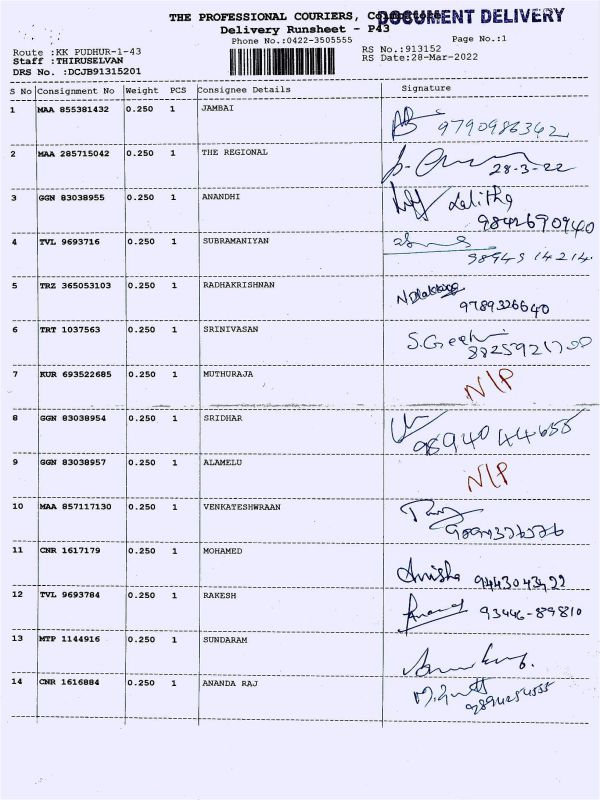 THE PROFESSIONAL COURIERS,
DOCUMENT DELIVERY
Delivery Runsheet - P43
Phone No.:0422-3505555
Page No.:1
Route :KK PUDHUR-1-43
RS No.:913152
Staff :THIRUSELVAN
RS Date:28-Mar-2022
DRS No. :DCJB91315201
S No Consignment No Weight PCS Consignee Details Signature
1 MAA 855381432 0.250 1 JAMBAI
9790986342
2 MAA 285715042 0.250 1 THE REGIONAL
28-3-22
3 GGN 83038955 0.250 1 ANANDHI Lalitha
9842690940
4 TVL 9693716 0.250 1 SUBRAMANIYAN
98943 14214
5 TRZ 365053103 0.250 1 RADHAKRISHNAN
9789326640
6 TRT 1037563 0.250 1 SRINIVASAN S.Geetha
7 KUR 693522685 0.250 1 MUTHURAJA N/P
8 GGN 83038954 0.250 1 SRIDHAR
98940 44655
9 GGN 83038957 0.250 1 ALAMELU N/P
10 MAA 857117130 0.250 1 VENKATESHWRAAN
11 CNR 1617179 0.250 1 MOHAMED
Anisha 9443043922
12 TVL 9693784 0.250 1 RAKESH
Anand 93446-89810
13 MTP 1144916 0.250 1 SUNDARAM
14 CNR 1616884 0.250 1 ANANDA RAJ